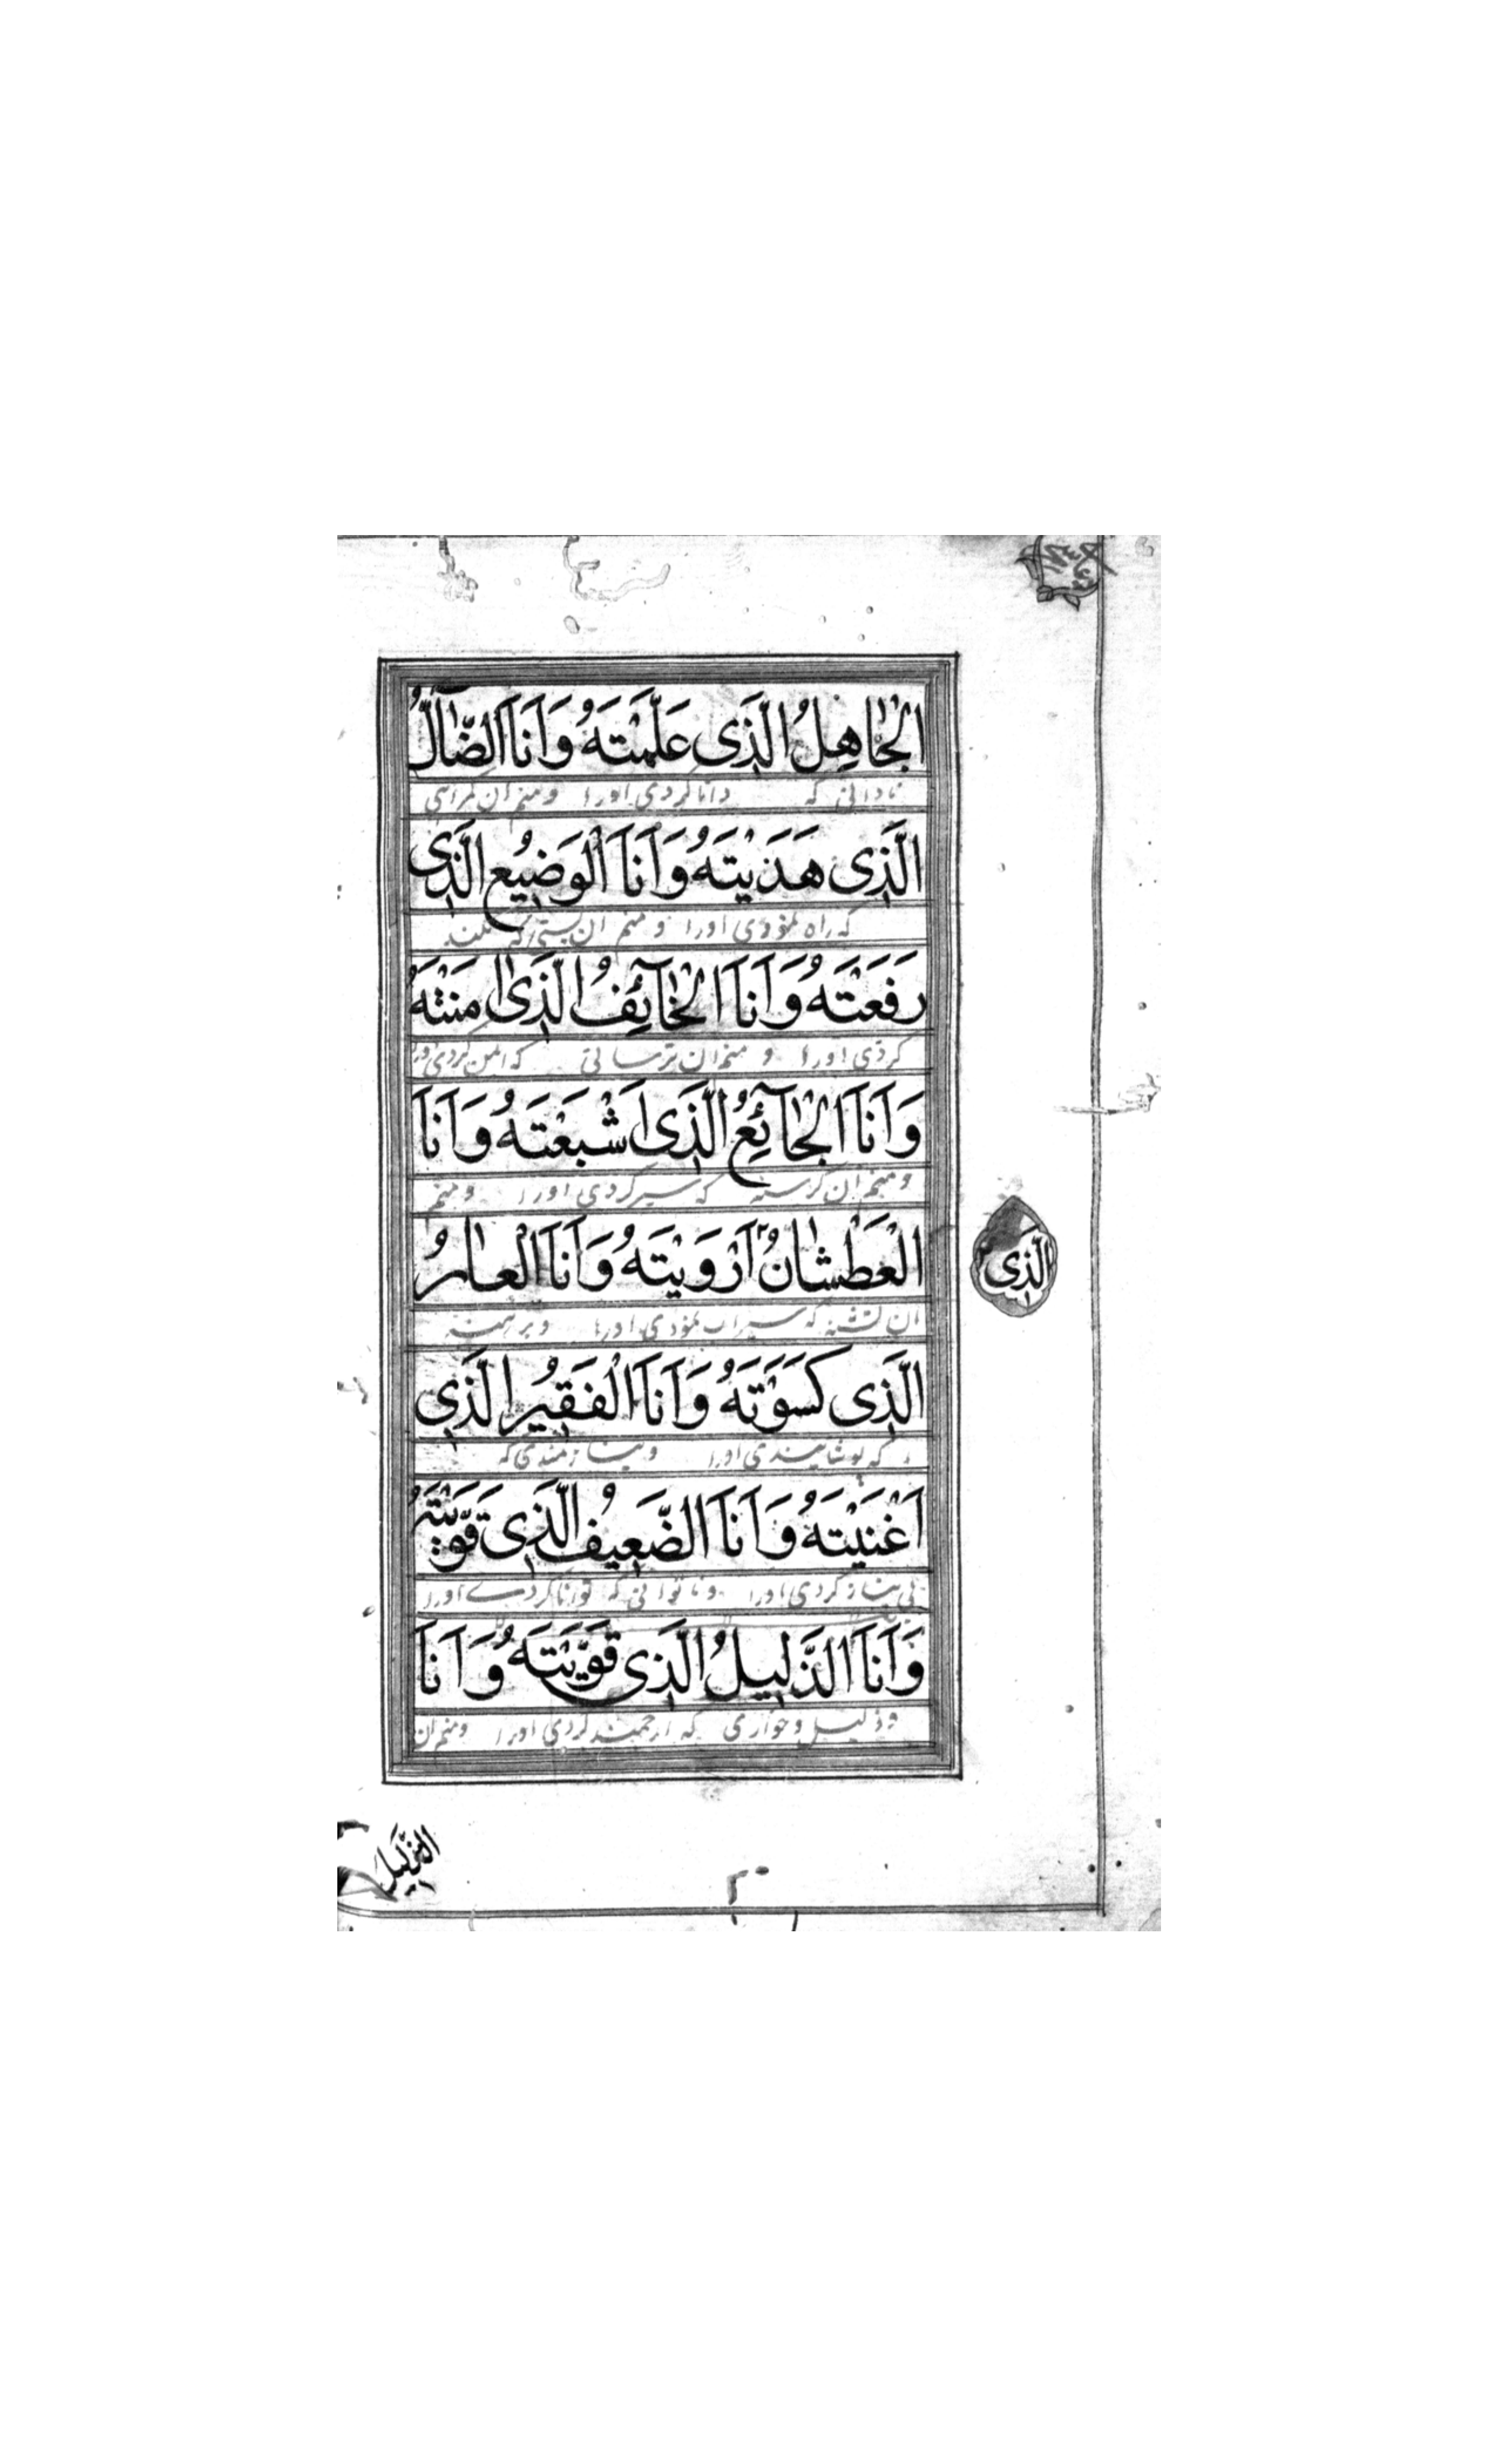 الْجٰاهِلُ الَّذِی عَلَّمْتَهُ وَاَنَا الضّٰآلُّ
نادانی که دانا کردی اورا و منم ان کمراهی
الَّذِی هَدَیْتَهُ وَاَنَا الْوَضِیعُ الَّذِی
که راه نمودی اورا و منم ان پستی که بلند
رَفَعْتَهُ وَاَنَا الْخٰآئِفُ الَّذِی اٰمَنْتَهُ
کردی اورا و منم ان ترسانی که ایمن کردی اورا
وَاَنَا الْجٰآئِعُ الَّذِی اَشْبَعْتَهُ وَاَنَا
و منم ان کرسنه که سیر کردی اورا و منم
الْعَطْشٰانُ اَرْوَیْتَهُ وَاَنَا الْعٰارِ
الَّذِی
ان تشنه که سیراب نمودی اورا و برهنه
الَّذِی کَسَوْتَهُ وَاَنَا الْفَقِیرُ الَّذِی
که پوشانیدی اورا و نیازمندی که
اَغْنَیْتَهُ وَاَنَا الضَّعِیفُ الَّذِی قَوَّیْتَهُ
بی نیاز کردی اورا و ناتوانی که توانا کردے اورا
وَاَنَا الذَّلِیلُ الَّذِی قَوَّیْتَهُ وَاَنَا
و ذلیل و خواری که ارجمند کردی اورا و منم ان